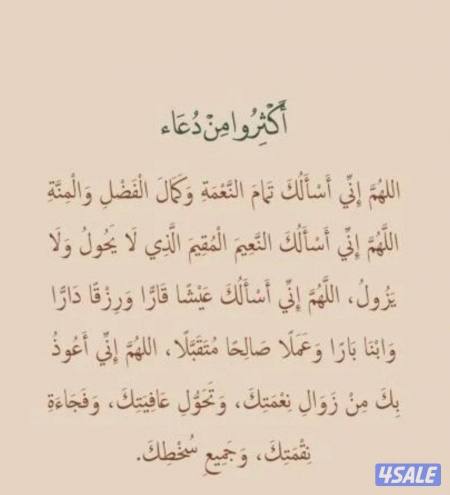 أَكْثِرُوا مِنْ دُعَاء
اللهُمَّ إِنِّي أَسْأَلُكَ تَمَامَ النَّعْمَةِ وَكَمَالَ الْفَضْلِ وَالْمِنَّةِ
اللَّهُمَّ إِنِّي أَسْأَلُكَ النَّعِيمَ الْمُقِيمَ الَّذِي لَا يَحُولُ وَلَا
يَزُولُ، اللَّهُمَّ إِنِّي أَسْأَلُكَ عَيْشًا قَارًّا وَرِزْقًا دَارًّا
وَابْنَا بَارًا وَعَمَلًا صَالِحًا مُتَقَبَّلًا، اللهُمَّ إِنِّي أَعُوذُ
بِكَ مِنْ زَوَالِ نِعْمَتِكَ، وَتَحَوُّلِ عَافِيَتِكَ، وَفَجَاءَةِ
نِقْمَتِكَ، وَجَمِيعِ سُخْطِكَ.
4SALE